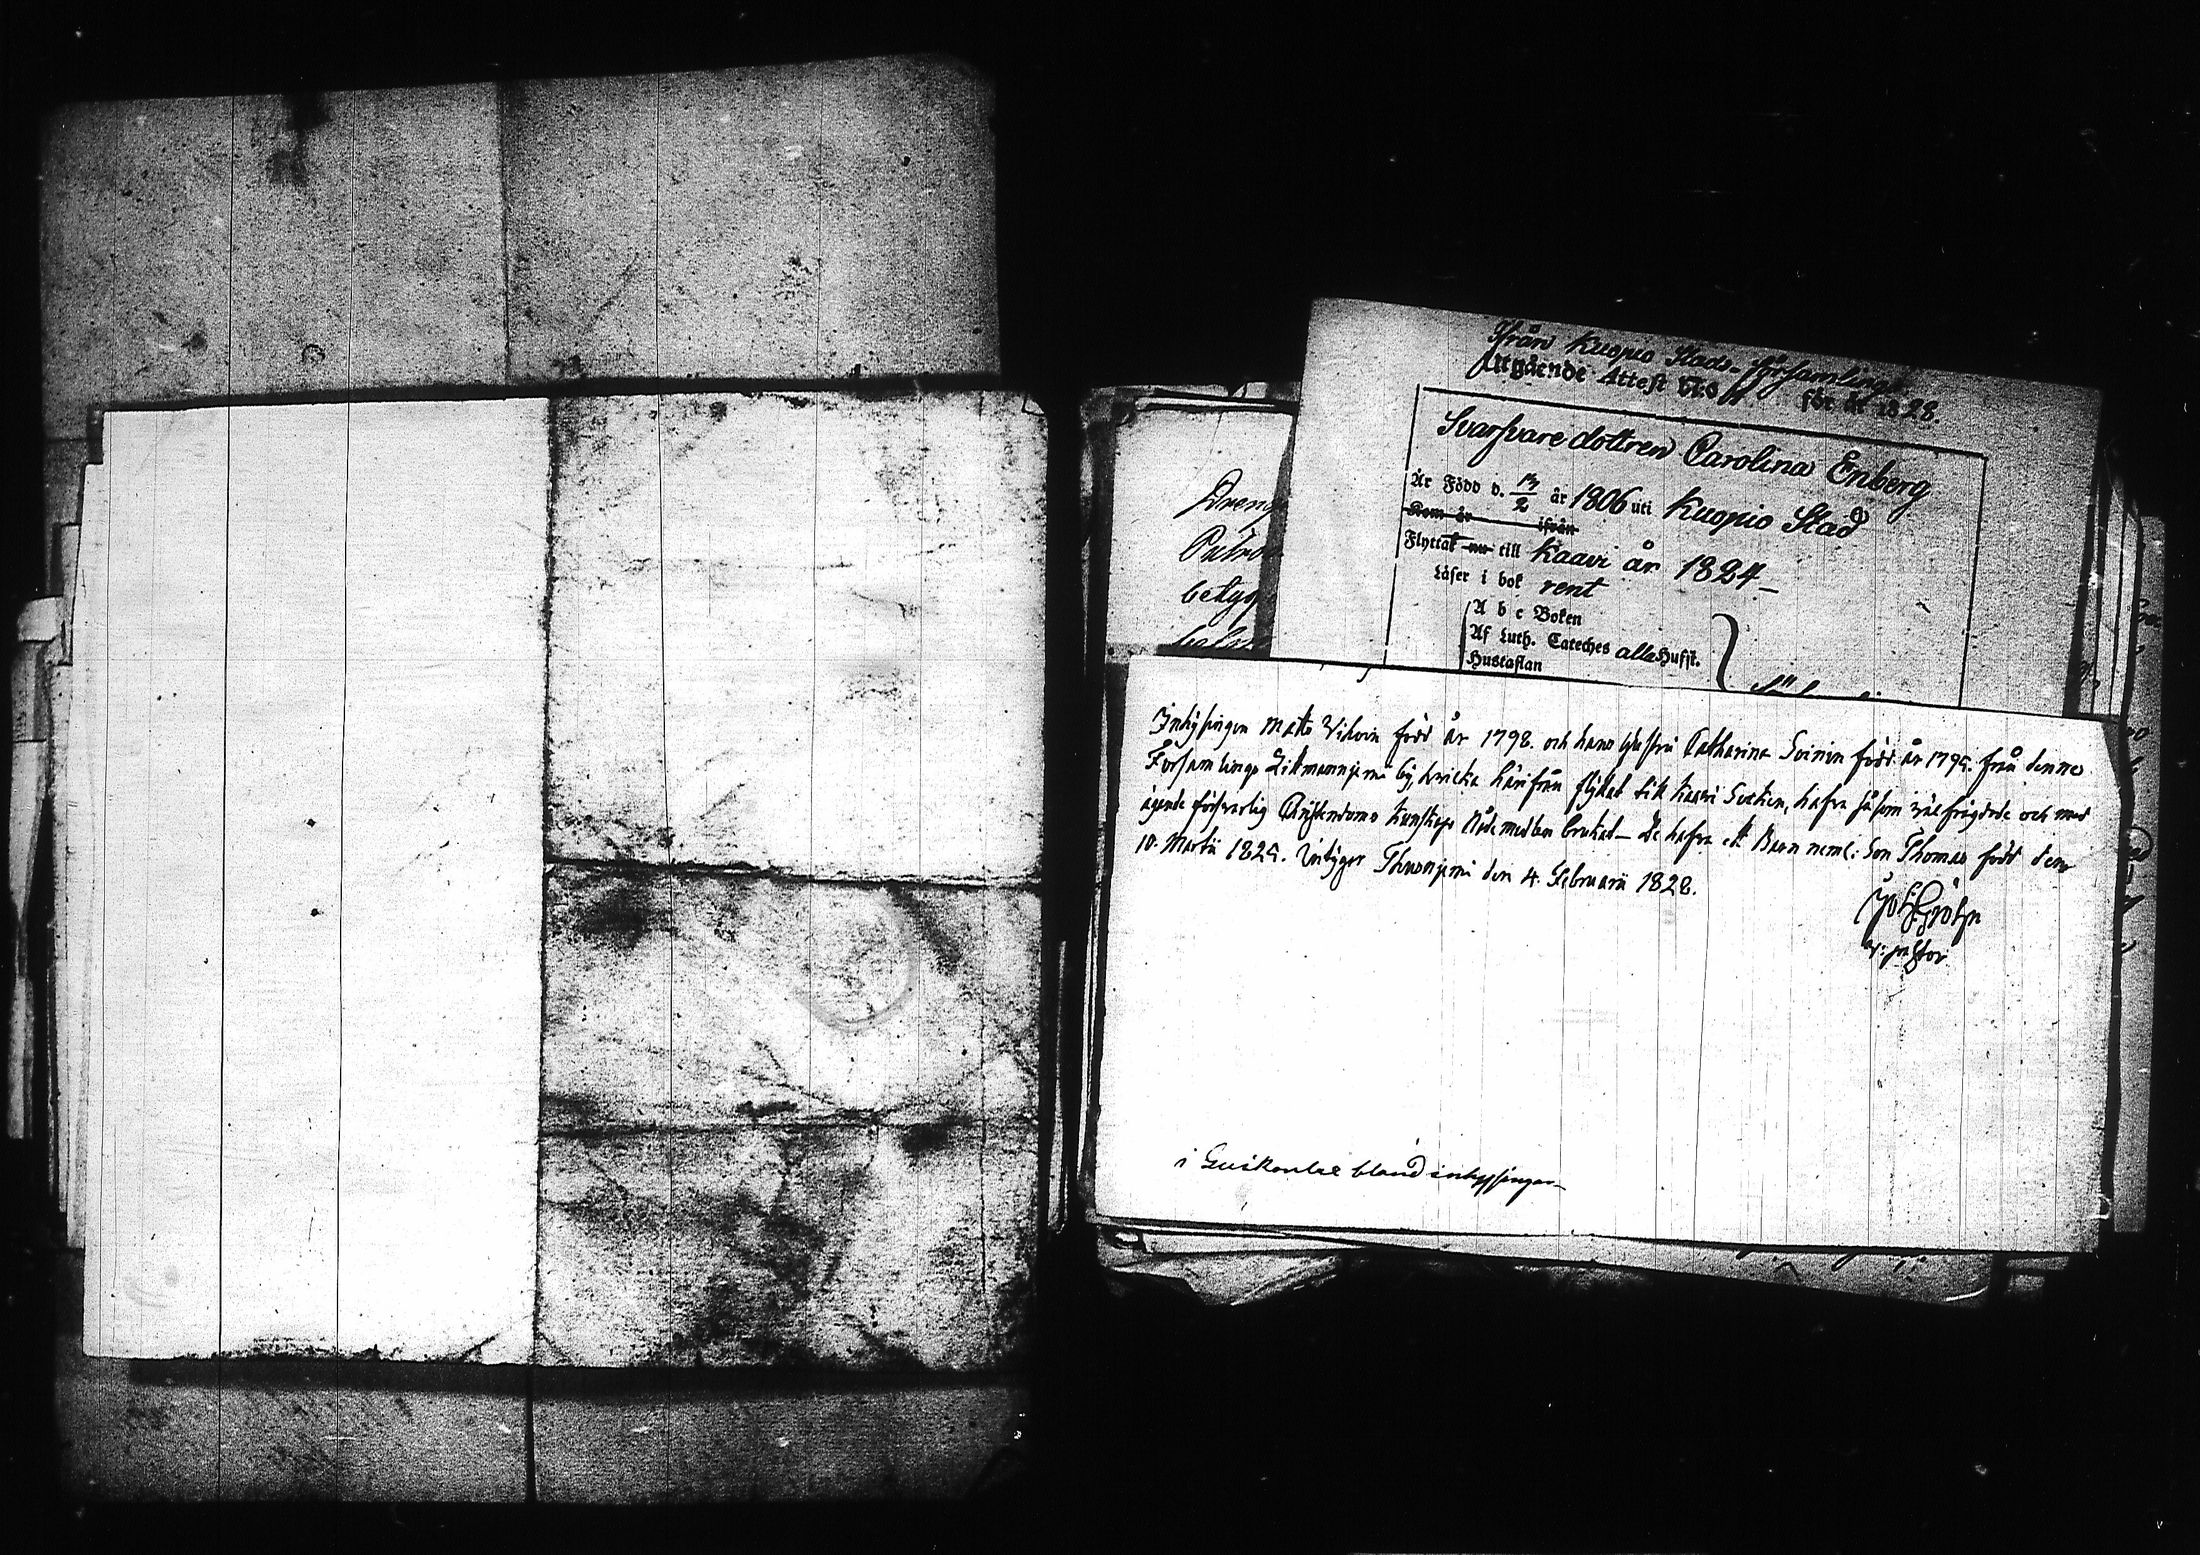 Ifrån Kuopio Stads-Församlings
Utgående Attest No för år 1828.
Svarfvare dottren Carolina Enberg
Är Född d. 17/2 år 1806 uti Kuopio Stad
Kom år ifrån
Flyttat nu till Kaavi år 1824 —
Läser i bok rent
A b c Boken
Af Luth. Cateches alla Hufst.
Hustaflan
Dreng
betyg
Inhysingen Matts född år 1798. och hans Hustru Catharina Soininen född år 1795. från denne
Församlings by, hvilka härifrån flyttat till Kaavi Socken, hafva såsom välfrägdade och med
ägende försvarlig Christendoms Kunskap Nådemedlen brukat — De hafva ett Barn neml: Son Thomas född den
10. Martii 1825. Intygar Thusniemi den 4. Februarii 1828.
Joh: Gröhn
v: pastor
i bland inhysingar —